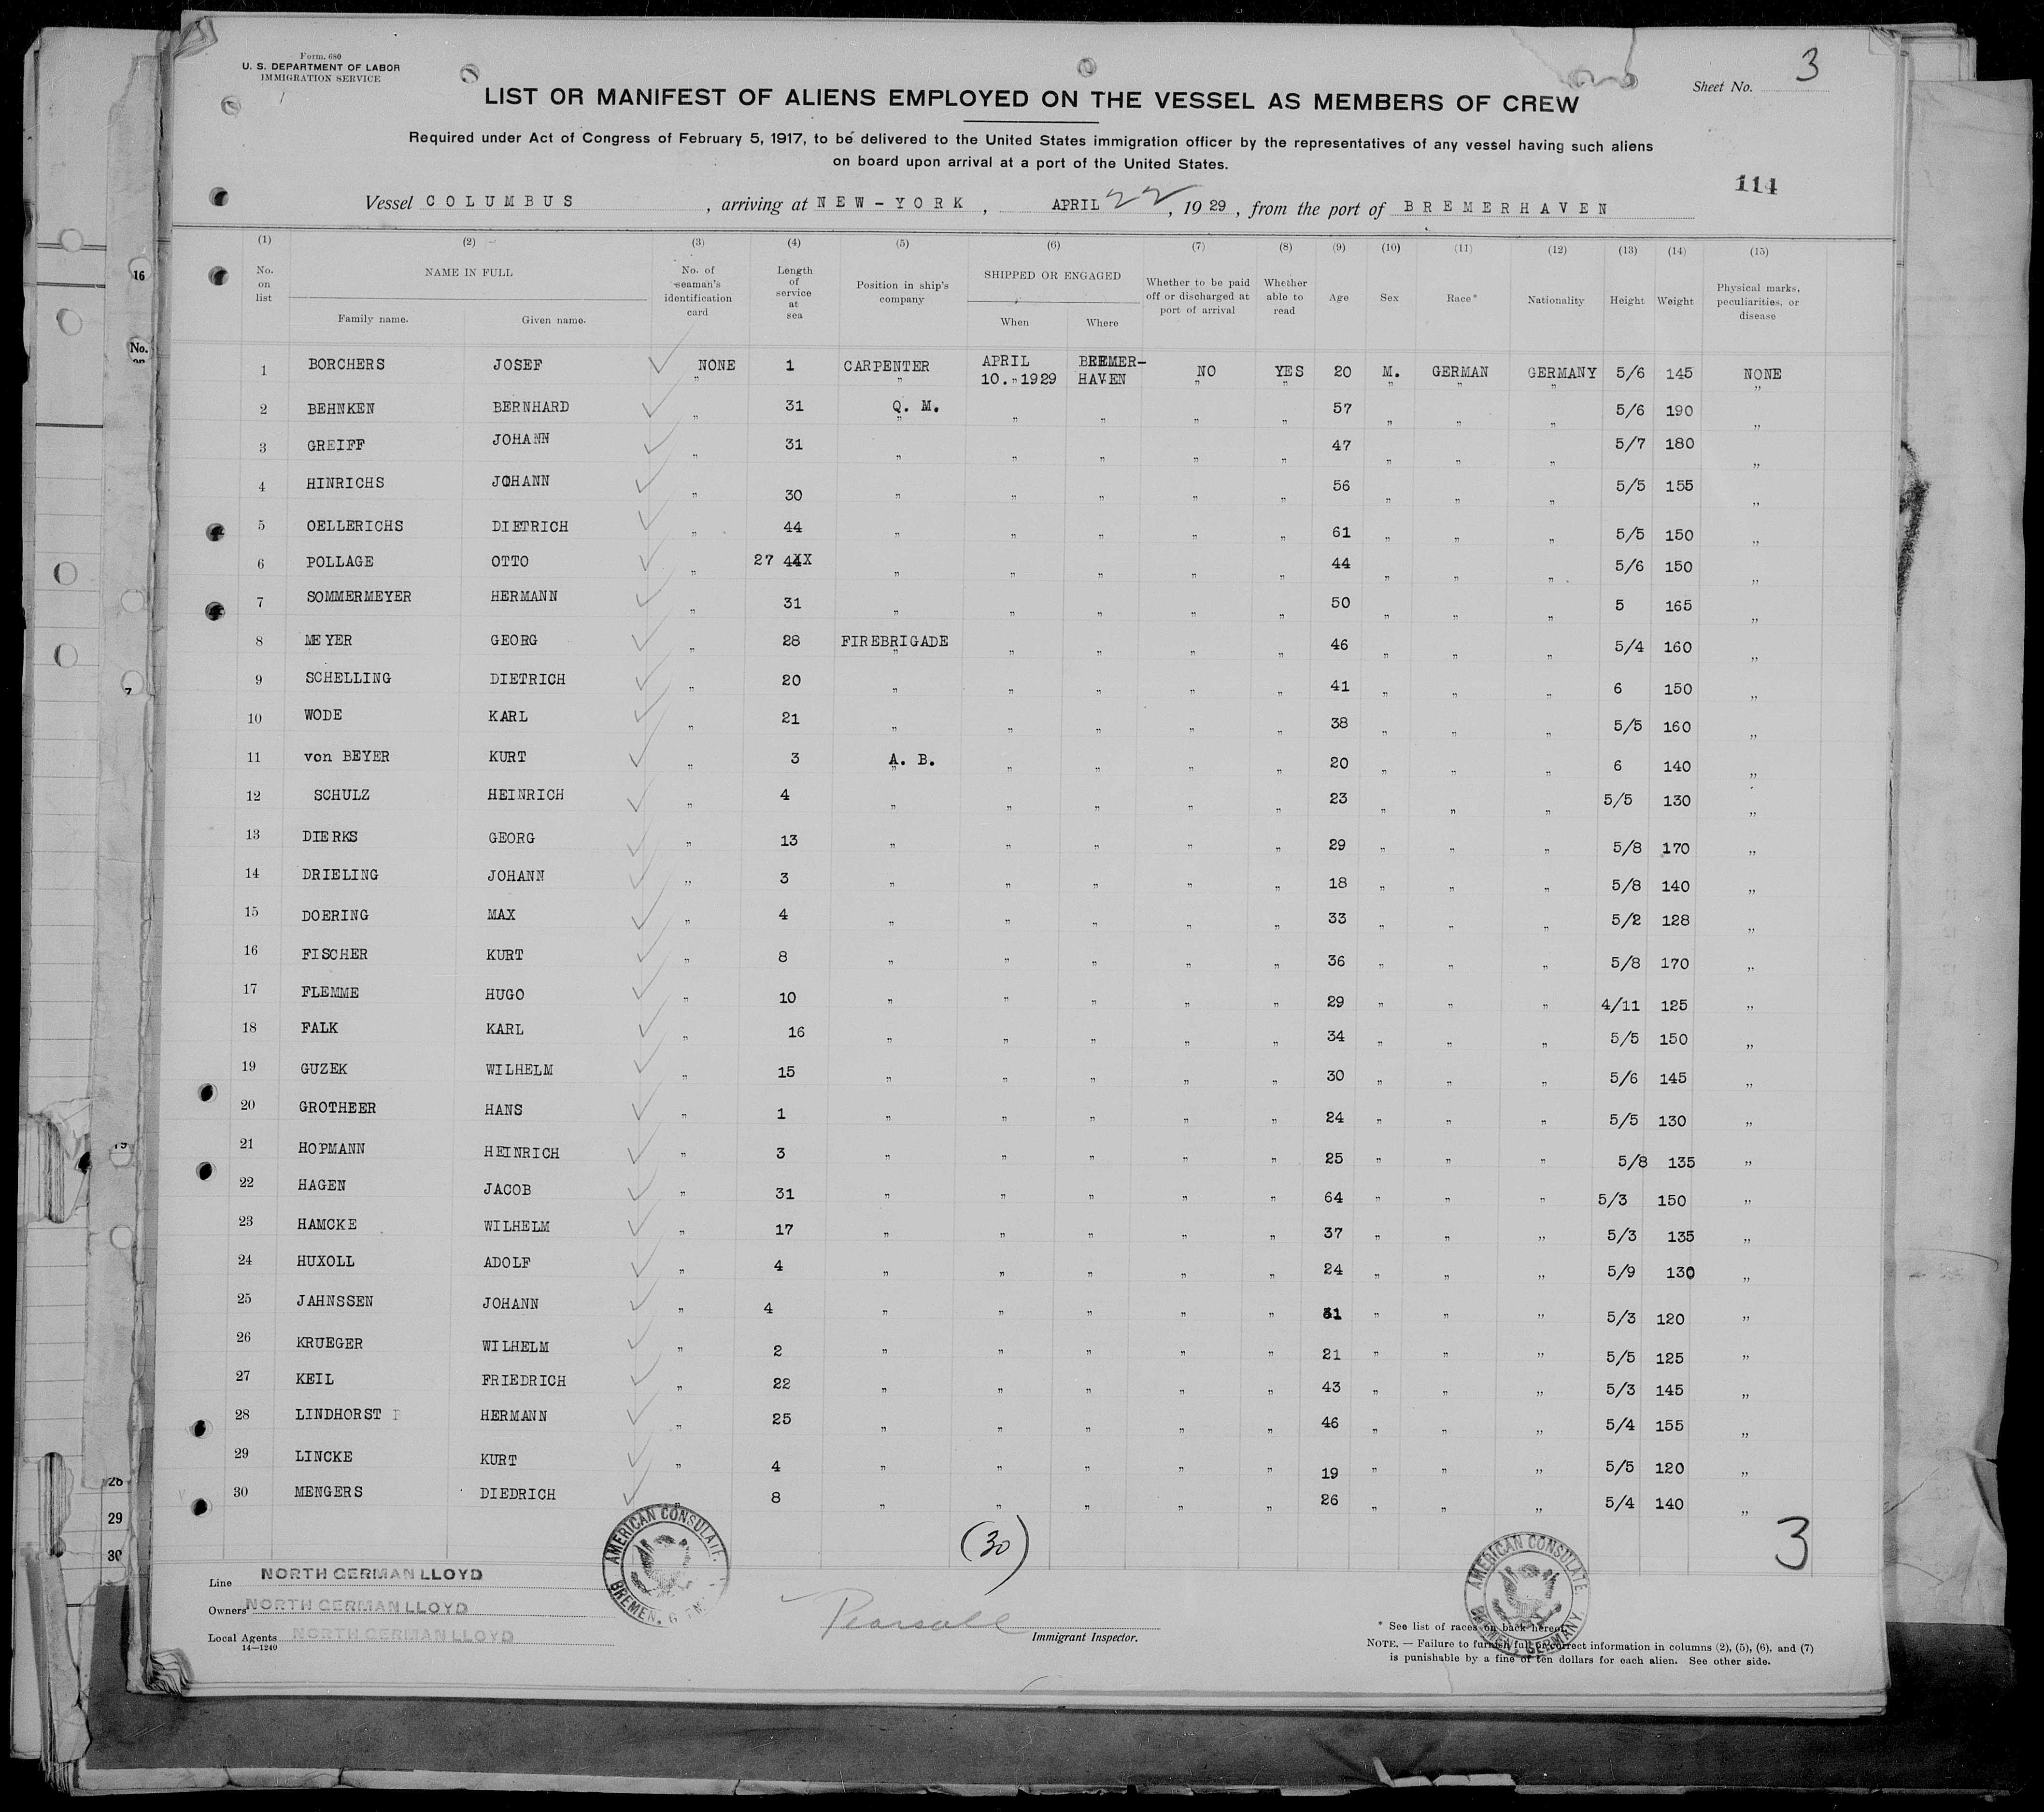 Form. 680
U. S. DEPARTMENT OF LABOR
IMMIGRATION SERVICE
Sheet No. 3
LIST OR MANIFEST OF ALIENS EMPLOYED ON THE VESSEL AS MEMBERS OF CREW
Required under Act of Congress of February 5, 1917, to be delivered to the United States immigration officer by the representatives of any vessel having such aliens
on board upon arrival at a port of the United States.
114
Vessel COLUMBUS, arriving at NEW-YORK, APRIL 22, 1929, from the port of BREMERHAVEN
(1) (2) (3) (4) (5) (6) (7) (8) (9) (10) (11) (12) (13) (14) (15)
No. on list NAME IN FULL Family name. Given name. No. of seaman's identification card Length of service at sea Position in ship's company SHIPPED OR ENGAGED When Where Whether to be paid off or discharged at port of arrival Whether able to read Age Sex Race* Nationality Height Weight Physical marks, peculiarities, or disease
1 BORCHERS JOSEF NONE 1 CARPENTER APRIL 10. 1929 BREMER-HAVEN NO YES 20 M. GERMAN GERMANY 5/6 145 NONE
2 BEHNKEN BERNHARD " 31 Q. M. " " " " 57 " " " 5/6 190 "
3 GREIFF JOHANN " 31 " " " " " 47 " " " 5/7 180 "
4 HINRICHS JOHANN " 30 " " " " " 56 " " " 5/5 155 "
5 OELLERICHS DIETRICH " 44 " " " " " 61 " " " 5/5 150 "
6 POLLAGE OTTO " 27 44XX " " " " " 44 " " " 5/6 150 "
7 SOMMERMEYER HERMANN " 31 " " " " " 50 " " " 5 165 "
8 MEYER GEORG " 28 FIREBRIGADE " " " " 46 " " " 5/4 160 "
9 SCHELLING DIETRICH " 20 " " " " " 41 " " " 6 150 "
10 WODE KARL " 21 " " " " " 38 " " " 5/5 160 "
11 von BEYER KURT " 3 A. B. " " " " 20 " " " 6 140 "
12 SCHULZ HEINRICH " 4 " " " " " 23 " " " 5/5 130 "
13 DIERKS GEORG " 13 " " " " " 29 " " " 5/8 170 "
14 DRIELING JOHANN " 3 " " " " " 18 " " " 5/8 140 "
15 DOERING MAX " 4 " " " " " 33 " " " 5/2 128 "
16 FISCHER KURT " 8 " " " " " 36 " " " 5/8 170 "
17 FLEMME HUGO " 10 " " " " " 29 " " " 4/11 125 "
18 FALK KARL " 16 " " " " " 34 " " " 5/5 150 "
19 GUZEK WILHELM " 15 " " " " " 30 " " " 5/6 145 "
20 GROTHEER HANS " 1 " " " " " 24 " " " 5/5 130 "
21 HOPMANN HEINRICH " 3 " " " " " 25 " " " 5/8 135 "
22 HAGEN JACOB " 31 " " " " " 64 " " " 5/3 150 "
23 HAMCKE WILHELM " 17 " " " " " 37 " " " 5/3 135 "
24 HUXOLL ADOLF " 4 " " " " " 24 " " " 5/9 130 "
25 JAHNSSEN JOHANN " 4 " " " " " " " " 5/3 120 "
26 KRUEGER WILHELM " 2 " " " " " 21 " " " 5/5 125 "
27 KEIL FRIEDRICH " 22 " " " " " 43 " " " 5/3 145 "
28 LINDHORST HERMANN " 25 " " " " " 46 " " " 5/4 155 "
29 LINCKE KURT " 4 " " " " " 19 " " " 5/5 120 "
30 MENGERS DIEDRICH " 8 " " " " " 26 " " " 5/4 140 "
(30)
3
Line NORTH GERMAN LLOYD
Owners NORTH GERMAN LLOYD
Local Agents NORTH GERMAN LLOYD
14—1240
AMERICAN CONSULATE. BREMEN,
Pearsall
Immigrant Inspector.
AMERICAN CONSULATE BREMEN, GERMANY.
* See list of races on back hereof.
NOTE. — Failure to furnish full or correct information in columns (2), (5), (6), and (7)
is punishable by a fine of ten dollars for each alien. See other side.
16
No.
29
30